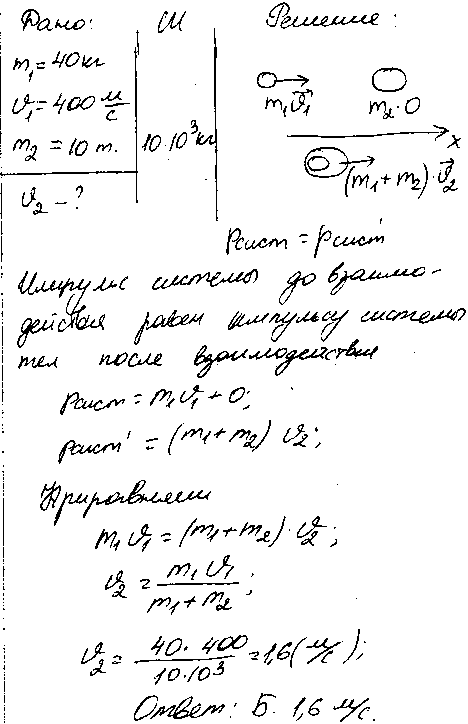 Дано: СИ Решение:
m₁ = 40 кг
υ₁ = 400 м/с
m₂ = 10 т. 10·10³ кг
υ₂ - ?
m₁υ⃗₁ m₂·0
x
(m₁+m₂)·υ⃗₂
Pсист = Pсист'
Импульс системы до взаимо-
действия равен импульсу системы
тел после взаимодействия
Pсист = m₁υ₁ + 0;
Pсист' = (m₁+m₂) υ₂;
Приравняем
m₁υ₁ = (m₁+m₂)·υ₂;
υ₂ = m₁υ₁ / m₁+m₂;
υ₂ = 40·400 / 10·10³ = 1,6 (м/с);
Ответ: Б. 1,6 м/с.